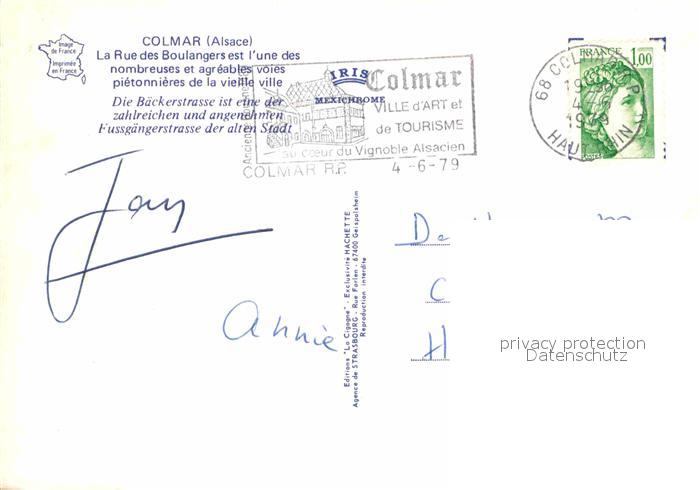 Image
de France
Imprimée
en France
COLMAR (Alsace)
La Rue des Boulangers est l'une des
nombreuses et agréables voies
piétonnières de la vieille ville
Die Bäckerstrasse ist eine der
zahlreichen und angenehmen
Fussgängerstrasse der alten Stadt
IRIS
MEXICHROME
Colmar
VILLE d'ART et
de TOURISME
au cœur du Vignoble Alsacien
COLMAR R.P. 4-6-79
68 COLMAR R.P.
4-6
1979
HAUT RHIN
FRANCE
1,00
Annie
Editions "La Cigogne" - Exclusivité HACHETTE
Agence de STRASBOURG - Rue Forlen - 67400 Geispolsheim
Reproduction interdite
De
C
H
privacy protection
Datenschutz